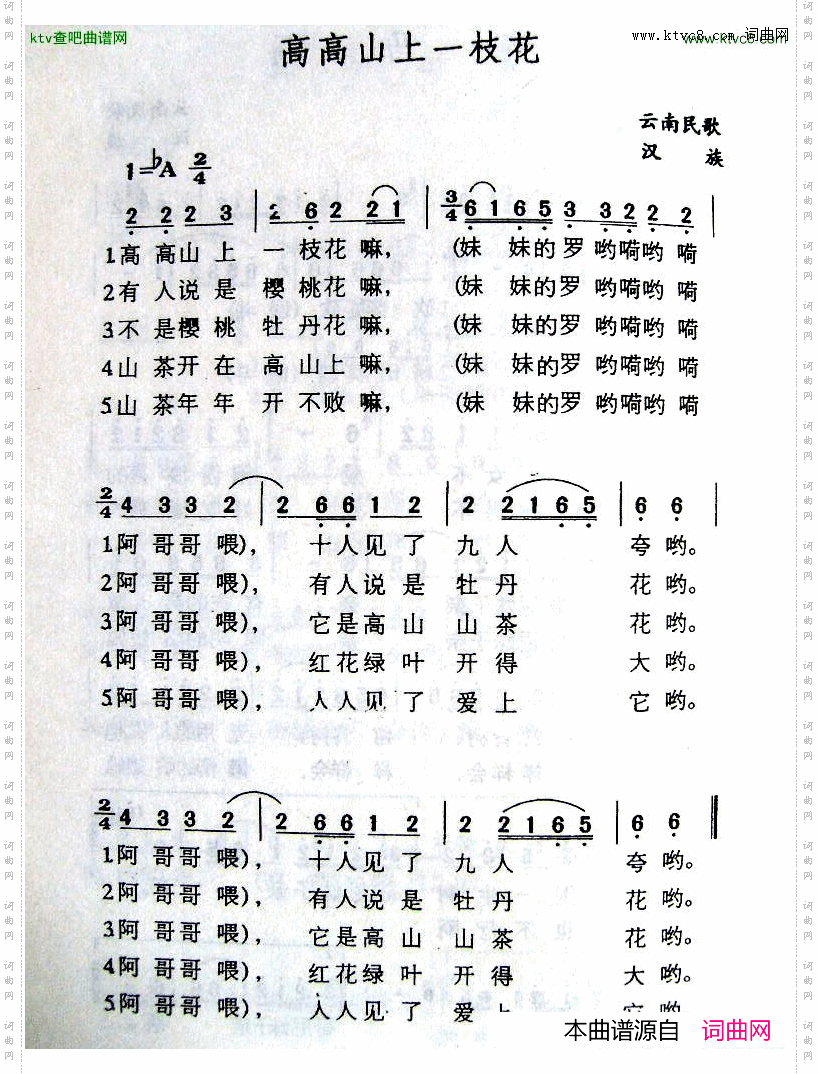 ktv查吧曲谱网
www.ktvc8.com 词曲网
高高山上一枝花
云南民歌
汉 族
1=♭A 2/4
2 2 2 3 | 2 6 2 2 1 | 3/4 6 1 6 5 3 3 2 2 2 |
1高 高山 上 一 枝花 嘛, (妹 妹的罗 哟嗬哟 嗬
2有 人说 是 樱 桃花 嘛, (妹 妹的罗 哟嗬哟 嗬
3不 是樱 桃 牡 丹花 嘛, (妹 妹的罗 哟嗬哟 嗬
4山 茶开 在 高 山上 嘛, (妹 妹的罗 哟嗬哟 嗬
5山 茶年 年 开 不败 嘛, (妹 妹的罗 哟嗬哟 嗬
2/4 4 3 3 2 | 2 6 6 1 2 | 2 2 1 6 5 | 6 6 |
1阿 哥哥 喂), 十人见 了 九 人 夸 哟。
2阿 哥哥 喂), 有人说 是 牡 丹 花 哟。
3阿 哥哥 喂), 它是高 山 山 茶 花 哟。
4阿 哥哥 喂), 红花绿 叶 开 得 大 哟。
5阿 哥哥 喂), 人人见 了 爱 上 它 哟。
2/4 4 3 3 2 | 2 6 6 1 2 | 2 2 1 6 5 | 6 6 ‖
1阿 哥哥 喂), 十人见 了 九 人 夸 哟。
2阿 哥哥 喂), 有人说 是 牡 丹 花 哟。
3阿 哥哥 喂), 它是高 山 山 茶 花 哟。
4阿 哥哥 喂), 红花绿 叶 开 得 大 哟。
5阿 哥哥 喂), 人人见 了 爱 上 它 哟
本曲谱源自 词曲网